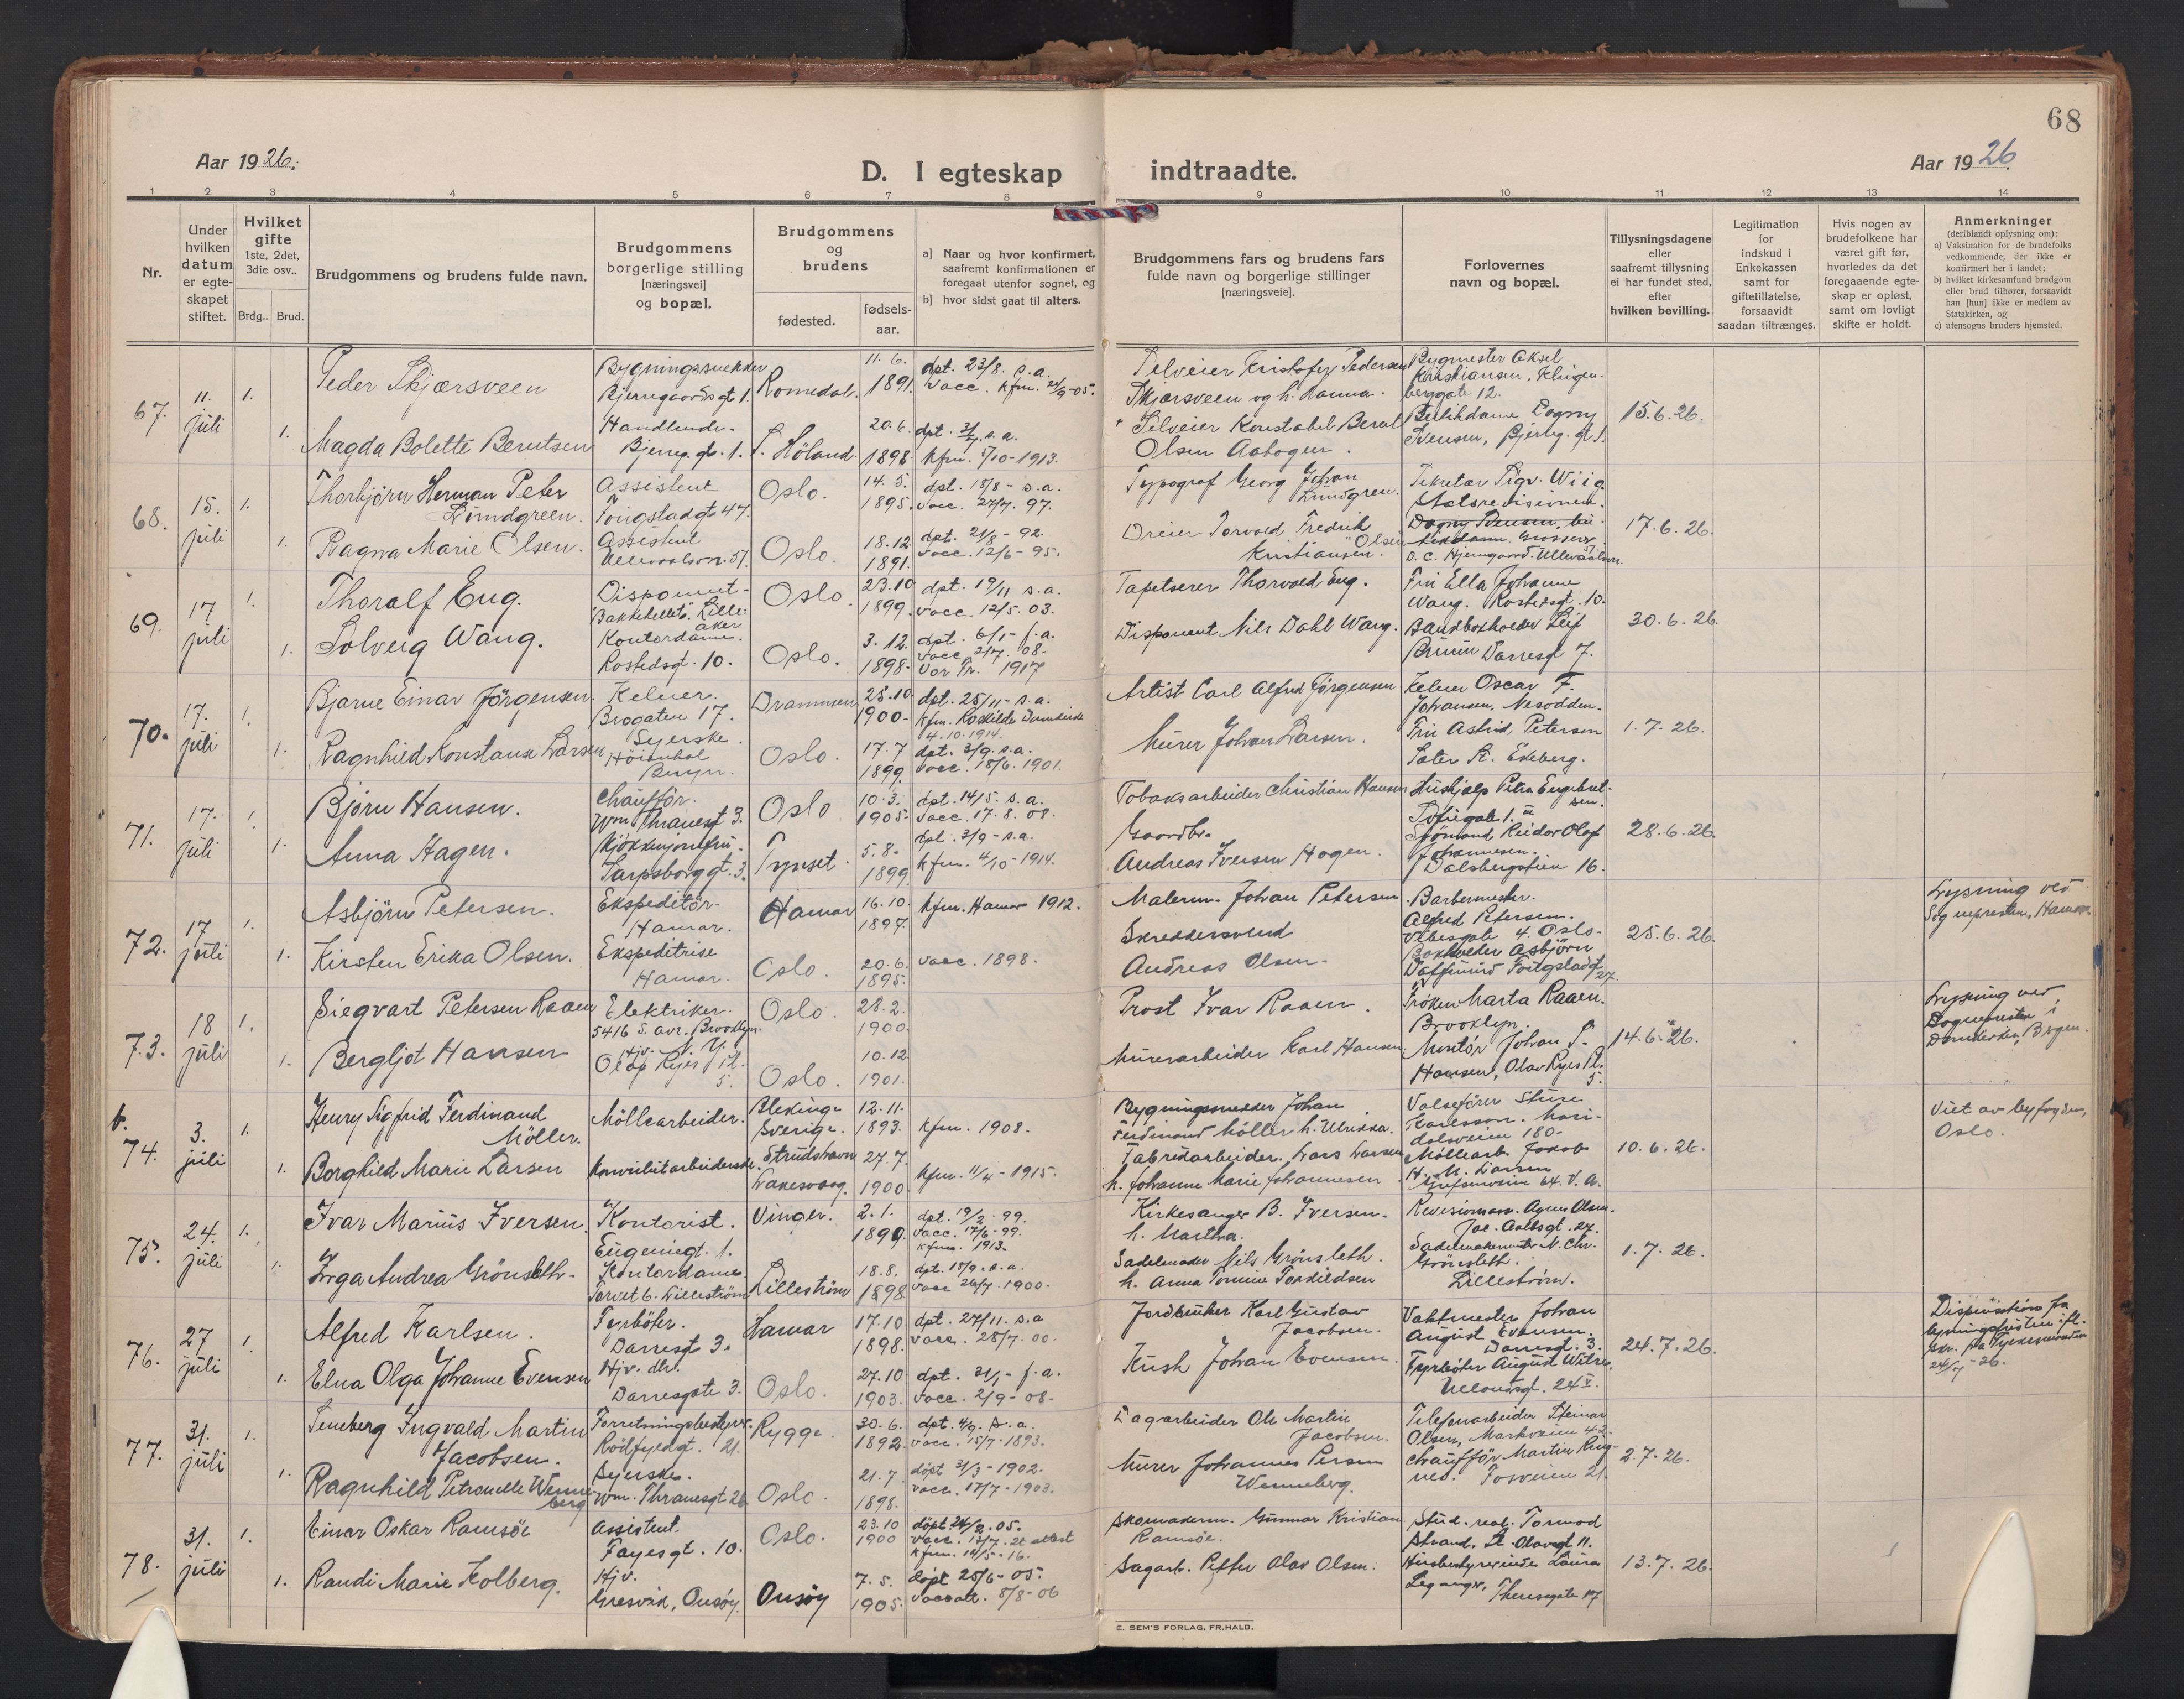 68
Aar 1926.
D. I egteskap indtraadte.
Aar 1926
1 2 3 4 5 6 7 8 9 10 11 12 13 14
Nr.
Under
hvilken
datum
er egte-
skapet
stiftet.
Hvilket
gifte
1ste, 2det,
3die osv..
Brdg.. Brud.
Brudgommens og brudens fulde navn.
Brudgommens
borgerlige stilling
[næringsvei]
og bopæl.
Brudgommens
og
brudens
fødested.
fødsels-
aar.
a] Naar og hvor konfirmert,
saafremt konfirmationen er
foregaat utenfor sognet, og
b] hvor sidst gaat til alters.
Brudgommens fars og brudens fars
fulde navn og borgerlige stillinger
[næringsveie].
Forlovernes
navn og bopæl.
Tillysningsdagene
eller
saafremt tillysning
ei har fundet sted,
efter
hvilken bevilling.
Legitimation
for
indskud i
Enkekassen
samt for
giftetillatelse,
forsaavidt
saadan tiltrænges.
Hvis nogen av
brudefolkene har
været gift før,
hvorledes da det
foregaaende egte-
skap er opløst,
samt om lovligt
skifte er holdt.
Anmerkninger
(deriblandt oplysning om):
a) Vaksination for de brudefolks
vedkommende, der ikke er
konfirmert her i landet;
b) hvilket kirkesamfund brudgom
eller brud tilhører, forsaavidt
han [hun] ikke er medlem av
Statskirken, og
c) utensogns bruders hjemsted.
67. 11. juli 1.
Peder Skjærsveen
Bygningssnekker
Bjerregaardsgt 1.
Romedal.
11. 6. 1891.
dpt. 23/8. s.a.
vacc. kfm. 24/9-05.
Kristofer Pedersen
Skjærsveen og h. Hanna.
Bygmester Aksel
Kristiansen, Klingen-
berggate 12.
15.6.26.
1. Magda Bolette Berntsen
Bjerreg. gt. 1.
Höland.
20.6. 1898.
kfm. 5/10-1913.
Konstabel Bernt
Olsen Aabogen.
Dagny
Svensen, Bjerreg. gt 1.
68. 15. juli 1.
Thorbjörn Herman Peter
Lundgreen.
Assistent
Tougstadgt 47.
Oslo.
14. 5. 1895.
dpt. 18/8 - s.a.
vacc. 27/7. 97.
Typograf Georg Johan
Lundgren.
Sekretær Sigv. Wiig.
Statsrevisionen.
17.6.26.
1. Ragna Marie Olsen.
Assistent
Ullevaalsvn. 57.
Oslo.
18.12 1891.
dpt. 21/8 - 92.
vacc. 12/6 - 95.
Dreier Torvald Fredrik
Kristiansen. Olsen
O. C. Hjemgaard. Ullevaalsvn.
69. 17 juli 1.
Thoralf Eug.
Disponent-
Bakkehellet. Lille-
aker
Oslo.
23.10 1899.
dpt. 19/11 s.a.
vacc. 12/5. 03.
Tapetserer Thorvald Eug.
Fru Ella Johanne
Wang. Rostedsgt. 10.
30.6.26.
1. Solveig Wang.
Kontordame.
Rostedsgt. 10.
Oslo.
3.12. 1898.
dpt. 6/1 - f.a.
vacc. 217. 08.
Vor Fr. 1917
Disponent Nils Dahl Wang.
Leif
Bruun Darresgt 7.
70. 17. juli 1.
Bjarne Einar Jörgensen.
Kelner.
Brogaten 17.
Drammen
28.10. 1900-
dpt. 25/11 - s.a.
kfm. Roskilde Domkirke
4.10.1914.
Artist Carl Alfred Jörgensen
Kelner Oscar F.
Johansen, Nesodden.
1.7.26.
1. Ragnhild Konstanse Larsen
Syerske.
Höienhal
Bryn.
Oslo.
17.7 1899.
dpt. 3/9. s.a.
vacc. 18/6. 1901.
Murer Johan Larsen.
Fru Astrid Peterson
Sater St. Ekeberg.
71. 17. juli 1.
Bjørn Hansen.
Chauffør.
Wm Thranesgt 3.
Oslo
10.3. 1905.
dpt. 14/5. s.a.
vacc. 17.8. 08.
Tobaksarbeider Christian Hansen
Hushjælp Petra Engebret-
sen.
Sofiegate 1. III
28.6.26.
1. Anna Hagen.
Kjøkkenjomfru.
Sarpsborggt. 3.
Tynset.
5.8. 1899
dpt. 3/9 - s.a.
kfm. 4/10 - 1914.
Gaardbr.
Andreas Iversen Hagen.
Sjömand Reidar Olaf
Johannesen.
Dalsbergstien 16.
72. 17 juli 1.
Asbjörn Petersen.
Ekspeditör.
Hamar.
Hamar
16.10. 1897.
kfm. Hamar 1912.
Malerm. Johan Petersen
Barbermester.
Alfred Petersen.
Vibesgate 4. Oslo-
25.6.26.
Lysning ved
Sognepresten, Hamar.
1. Kirsten Erika Olsen.
Ekspeditrise
Hamar.
Oslo.
20.6. 1895.
vacc. 1898.
Skreddersvend
Andreas Olsen-
Bokholder Asbjörn
27.
73. 18 juli 1.
Siegvart Petersen Raaen
Elektriker.
5416 5. ave. Brooklyn.
N. Y.
Oslo.
28.2. 1900
Prost Ivar Raaen.
Fröken Marta Raaen.
Brooklyn.
14.6.26.
Lysning ved
Sognepresten i
Domkirken, Bergen.
1. Bergljot Hansen
Hjv.
Olaf Ryes Pl.
5.
Oslo.
10.12 1901.
Murerarbeider Karl Hansen
Montör Johan S.
Hansen, Olav Ryes Pl.
5.
b. 74. 3. juli 1.
Henry Sigfrid Ferdinand
Möller.
Möllearbeider.
Blekinge
Sverige.
12.11. 1893.
kfm. 1908.
Bygningssnekker Johan
Ferdinand Möller h. Ulrikka.
Valsefører Sture
Karlsson. Mari-
dalsveien 180-
10.6.26.
Viet av byfogden,
Oslo.
1. Borghild Marie Larsen
27.7. 1900
kfm. 11/4 - 1915.
Fabrikarbeider. Lars Larsen
h. Johanne Marie Johannesen
Möllearb. Jakob
H. M. Larsen
64. V. A.
75. 24. juli 1.
Ivar Marius Iversen
Kontorist.
Eugeniegt. 1.
Vinger.
2.1. 1899.
dpt. 19/2. 99.
vacc. 17/6 - 99.
kfm. 1913.
Kirkesanger B. Iversen.
h. Martha.
Revisionsass. Agnes Olsen.
Jac. Aallsgt. 27.
1.7.26.
1. Inga Andrea Grönseth-
Kontordame
Torvet 6. Lilleström
Lilleström
18.8. 1898
dpt. 18/9. s.a.
vacc 26/7. 1900.
Sadelmaker Nils Grönsleth.
h. Anna Tomine Torkildsen
Sadelmakermester N. Chr.
Grönsleth.
Lilleström.
76. 27 juli 1.
Alfred Karlsen.
Fyrbøter.
Darresgt 3.
Hamar
17.10 1898.
dpt. 27/11. s.a
vacc. 28/7. 00.
Jordbruker Karl Gustav
Jacobsen.
Vaktmester Johan
August Evensen.
Darresgt. 3.
24.7.26.
Dispensation fra
24/7 - 26.
1. Elna Olga Johanne Evensen
Hjv. dtr.
Darresgate 3.
Oslo.
27.10 1903.
dpt. 31/1 - f.a.
vacc. 2/9 - 08.
Kusk Johan Evensen
Fyrbøter August Witsø.
Uelandsgt. 24 V.
77. 31. juli 1.
Seneberg Ingvald Martin
Jacobsen.
Forretningsbestyrer.
Rödfyldgt. 21.
Rygge.
30.6. 1892.
dpt. 4/9. s.a.
vacc. 15/7-1893.
Dagarbeider Ole Martin
Jacobsen.
Telefonarbeider Steinar
Olsen, Markveien 42-
2.7.26.
1. Ragnhild Petronelle Wenne-
berg
Syerske.
Wm. Thranesgt 26
Oslo.
21.7. 1898.
döpt 31/3 - 1902.
vacc. 17/7 - 1903.
Murer Johannes Persen
Wenneberg.
Chauffør Martin Ring-
nes. Fosveien 21.
78. 31. juli 1.
Einar Oskar Ramsöe
Assistent.
Fayesgt. 10.
Oslo.
23.10 1900
döpt 24/2. 05.
vacc. 13/7. 26 attest
kfm. 14/5 - 16.
Skomakerm. Gunnar Kristian
Ramsöe.
Stud. real. Tormod
Strand. St. Olavsgt 11.
13.7.26.
1. Randi Marie Kolberg.
Hjv.
Gresvik, Onsöy.
Onsöy
7.5. 1905.
döpt 25/6 - 05.
vaccatt. 8/8 - 06
Sagarb. Petter Olav Olsen.
Husbestyrerinde Laura
Theresegate 17
E. SEM'S FORLAG, FR.HALD.